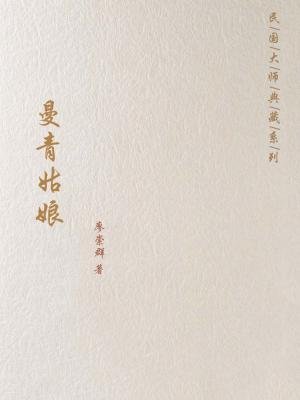 民|国|大|师|典|藏|系|列
曼青姑娘
廖崇群 著